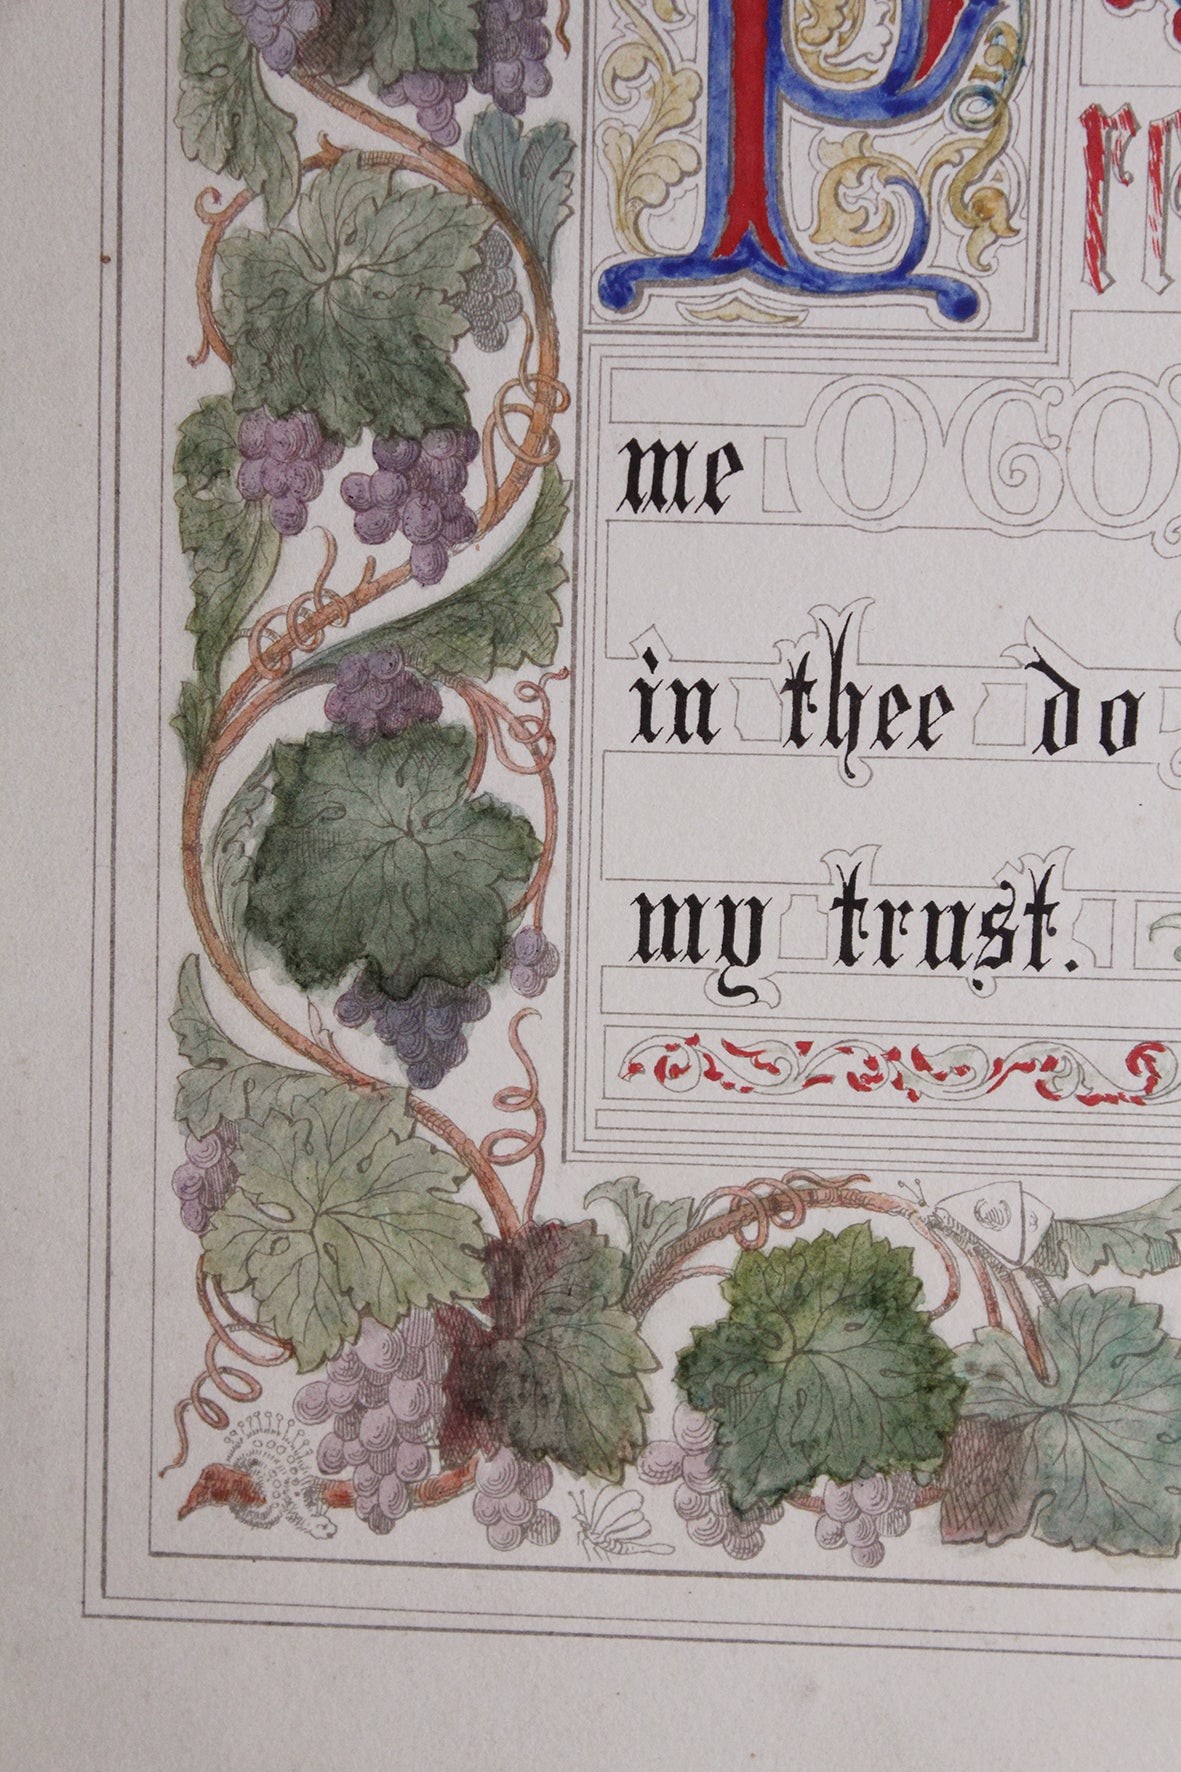 P
me O GO
in thee do
my trust.